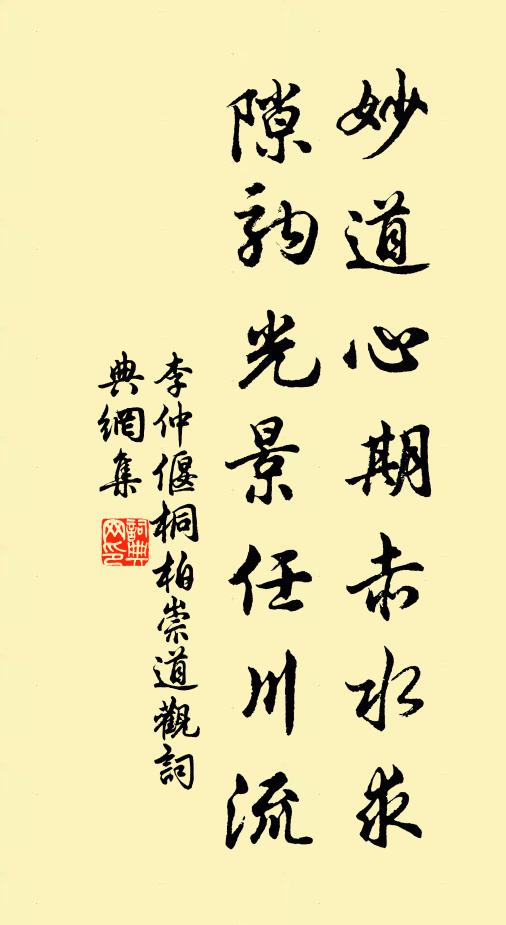 妙道心期赤水求
隙驹光景任川流
李仲偃桐柏崇道觀詞
典網集
詞典網印